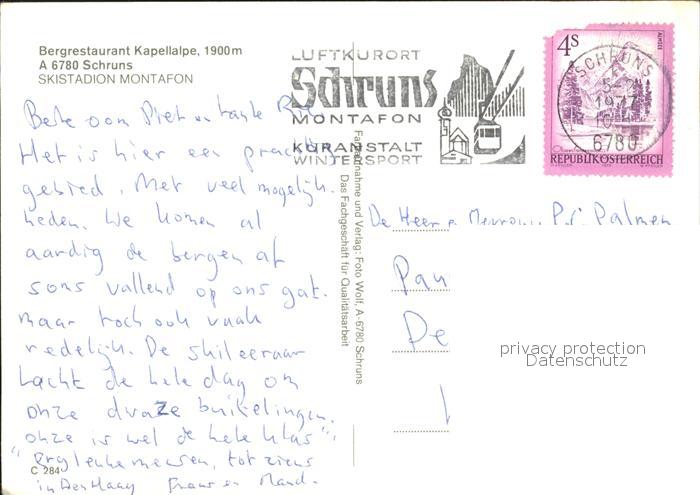 Bergrestaurant Kapellalpe, 1900m
A 6780 Schruns
SKISTADION MONTAFON
LUFTKURORT
Schruns
MONTAFON
KURANSTALT
WINTERSPORT
SCHRUNS
1977
6780
4S
ALMSEE
REPUBLIK ÖSTERREICH
Beste oom Piet en tante
Het is hier een prachtig
gebied. Met veel mogelijk-
heden. We komen al
aardig de bergen af
soms vallend op ons gat.
maar toch ook vaak
redelijk. De skileeraar
lacht de hele dag om
onze dwaze buitelingen.
onze is wel de hele klas
mensen, tot ziens
in Den Haag Frans en
C 284
Farbaufnahme und Verlag: Foto Wolf, A-6780 Schruns
Das Fachgeschäft für Qualitätsarbeit
De Heer e Mevrouw P.J. Palmen
Pau
De
privacy protection
Datenschutz